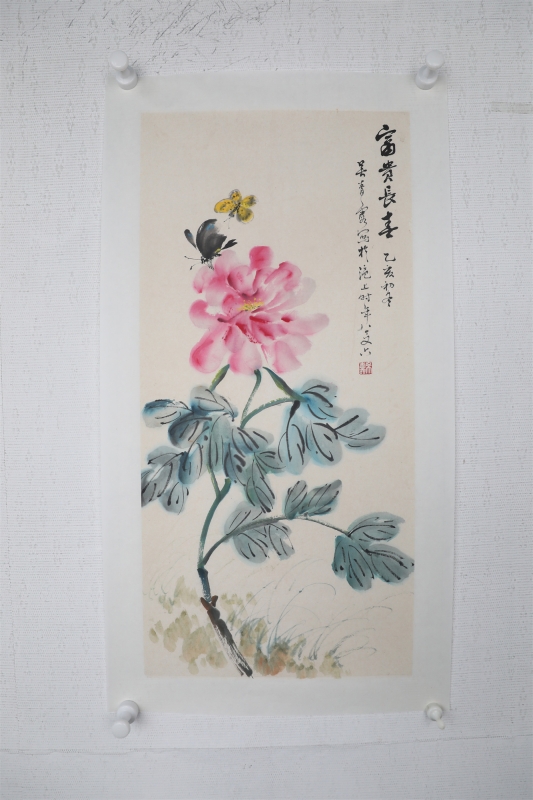 富贵長春
乙亥初冬
吴青霞寫於滬上時年八又六